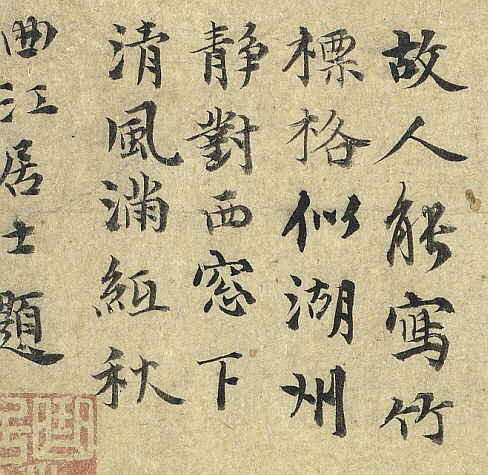 故人能寫竹
標格似湖州
靜對西窓下
清風滿紙秋
曲江居士題